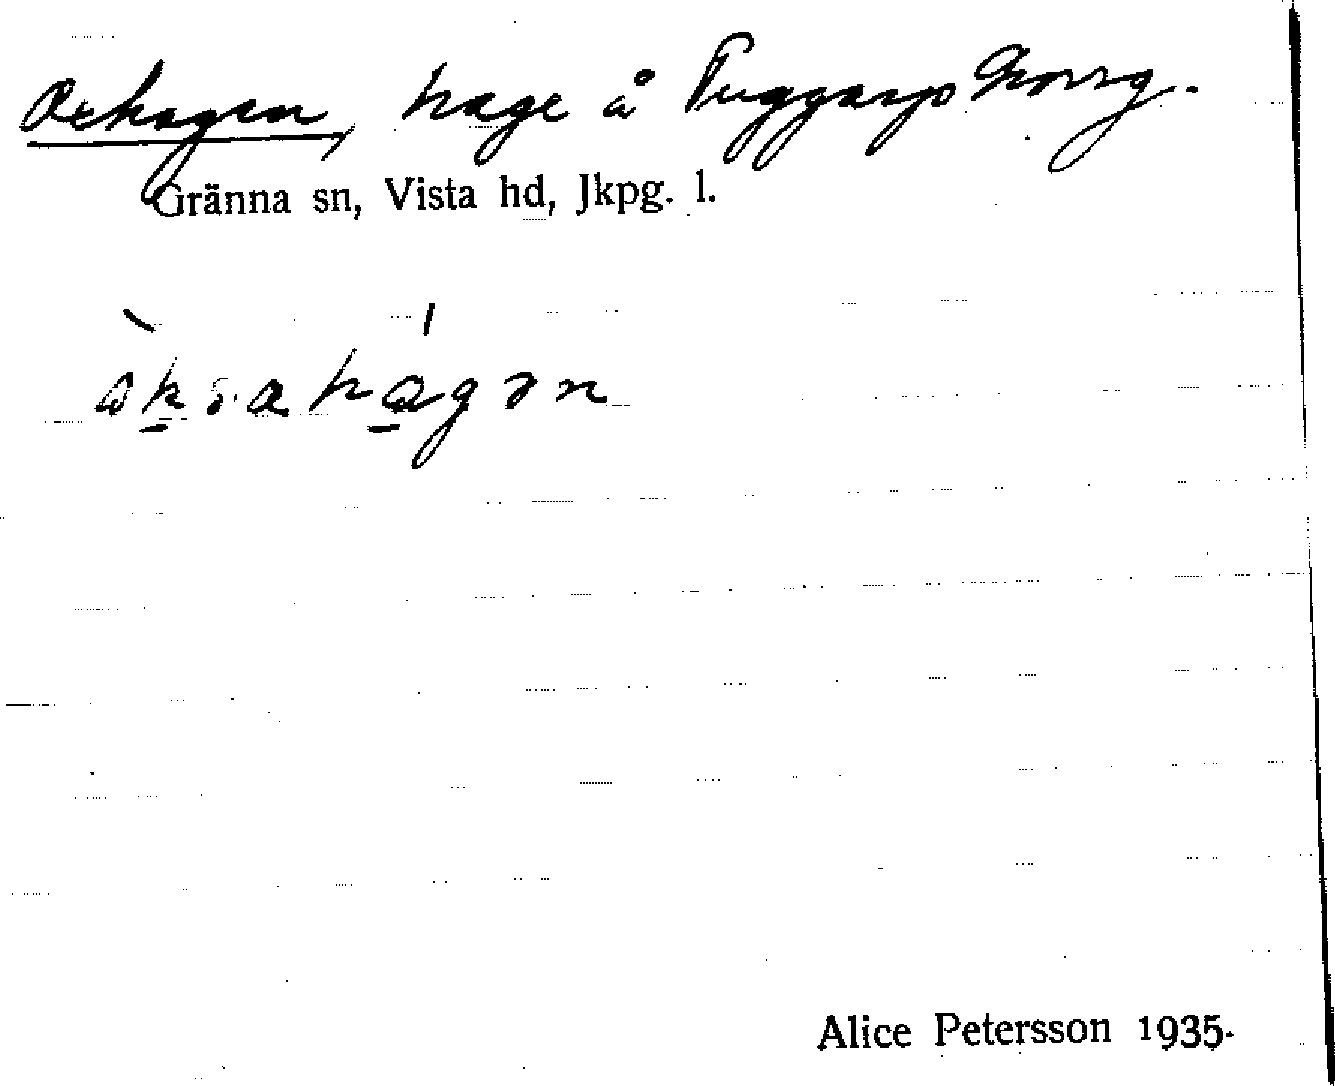 Oxhagen, hage å Puggarp Norrg.
Gränna sn, Vista hd, Jkpg. l.
Alice Petersson 1935.